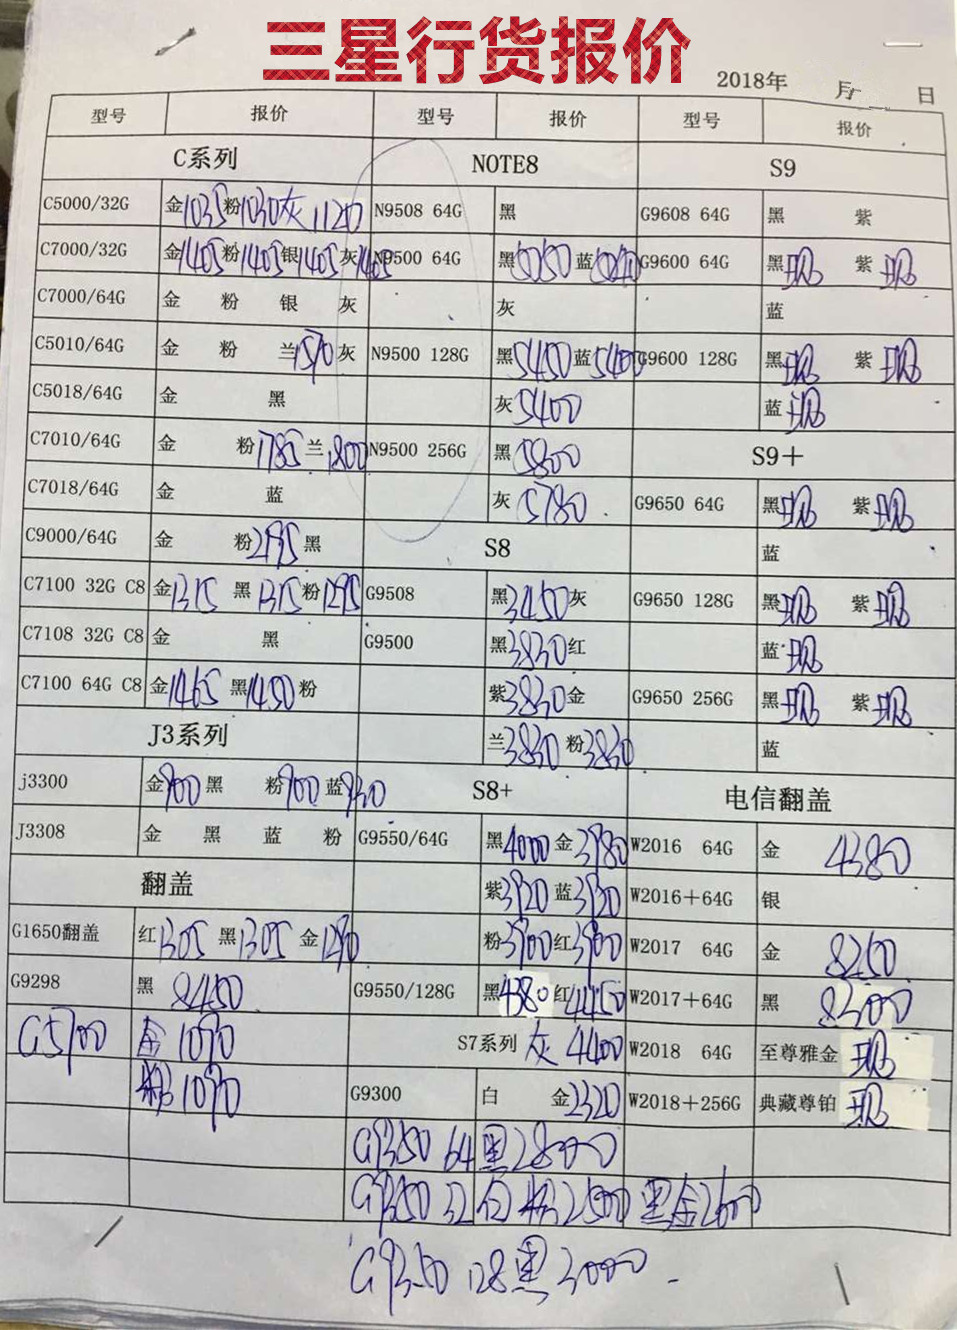 三星行货报价
2018年 月 日
型号 报价 型号 报价 型号 报价
C系列 NOTE8 S9
C5000/32G 金1035 粉1030 灰1120 N9508 64G 黑 G9608 64G 黑 紫
C7000/32G 金1405 粉1405 银1405 灰1405 N9500 64G 黑5050 蓝5040 G9600 64G 黑现 紫现
C7000/64G 金 粉 银 灰 灰 蓝
C5010/64G 金 粉 兰1570 灰 N9500 128G 黑5450 蓝5400 G9600 128G 黑现 紫现
C5018/64G 金 黑 灰5400 蓝现
C7010/64G 金 粉1785 兰1800 N9500 256G 黑5800 S9+
C7018/64G 金 蓝 灰5780 G9650 64G 黑现 紫现
C9000/64G 金 粉2195 黑 S8 蓝
C7100 32G C8 金1315 黑1315 粉1295 G9508 黑3450 灰 G9650 128G 黑现 紫现
C7108 32G C8 金 黑 G9500 黑3830 红 蓝现
C7100 64G C8 金1465 黑1450 粉 紫3830 金 G9650 256G 黑现 紫现
J3系列 兰3830 粉3830 蓝
j3300 金900 黑 粉900 蓝930 S8+ 电信翻盖
J3308 金 黑 蓝 粉 G9550/64G 黑4000 金3980 W2016 64G 金 4380
翻盖 紫3920 蓝3920 W2016+64G 银
G1650翻盖 红1305 黑1305 金1290 粉3900 红3900 W2017 64G 金 8250
G9298 黑 8450 G9550/128G 黑4380 红4450 W2017+64G 黑 8300
G5700 金1090 S7系列 灰4400 W2018 64G 至尊雅金 现
粉1090 G9300 白 金2320 W2018+256G 典藏尊铂 现
G9350 64 黑2800
G9350 32 白 粉2500 黑金2600
G9350 128 黑3000